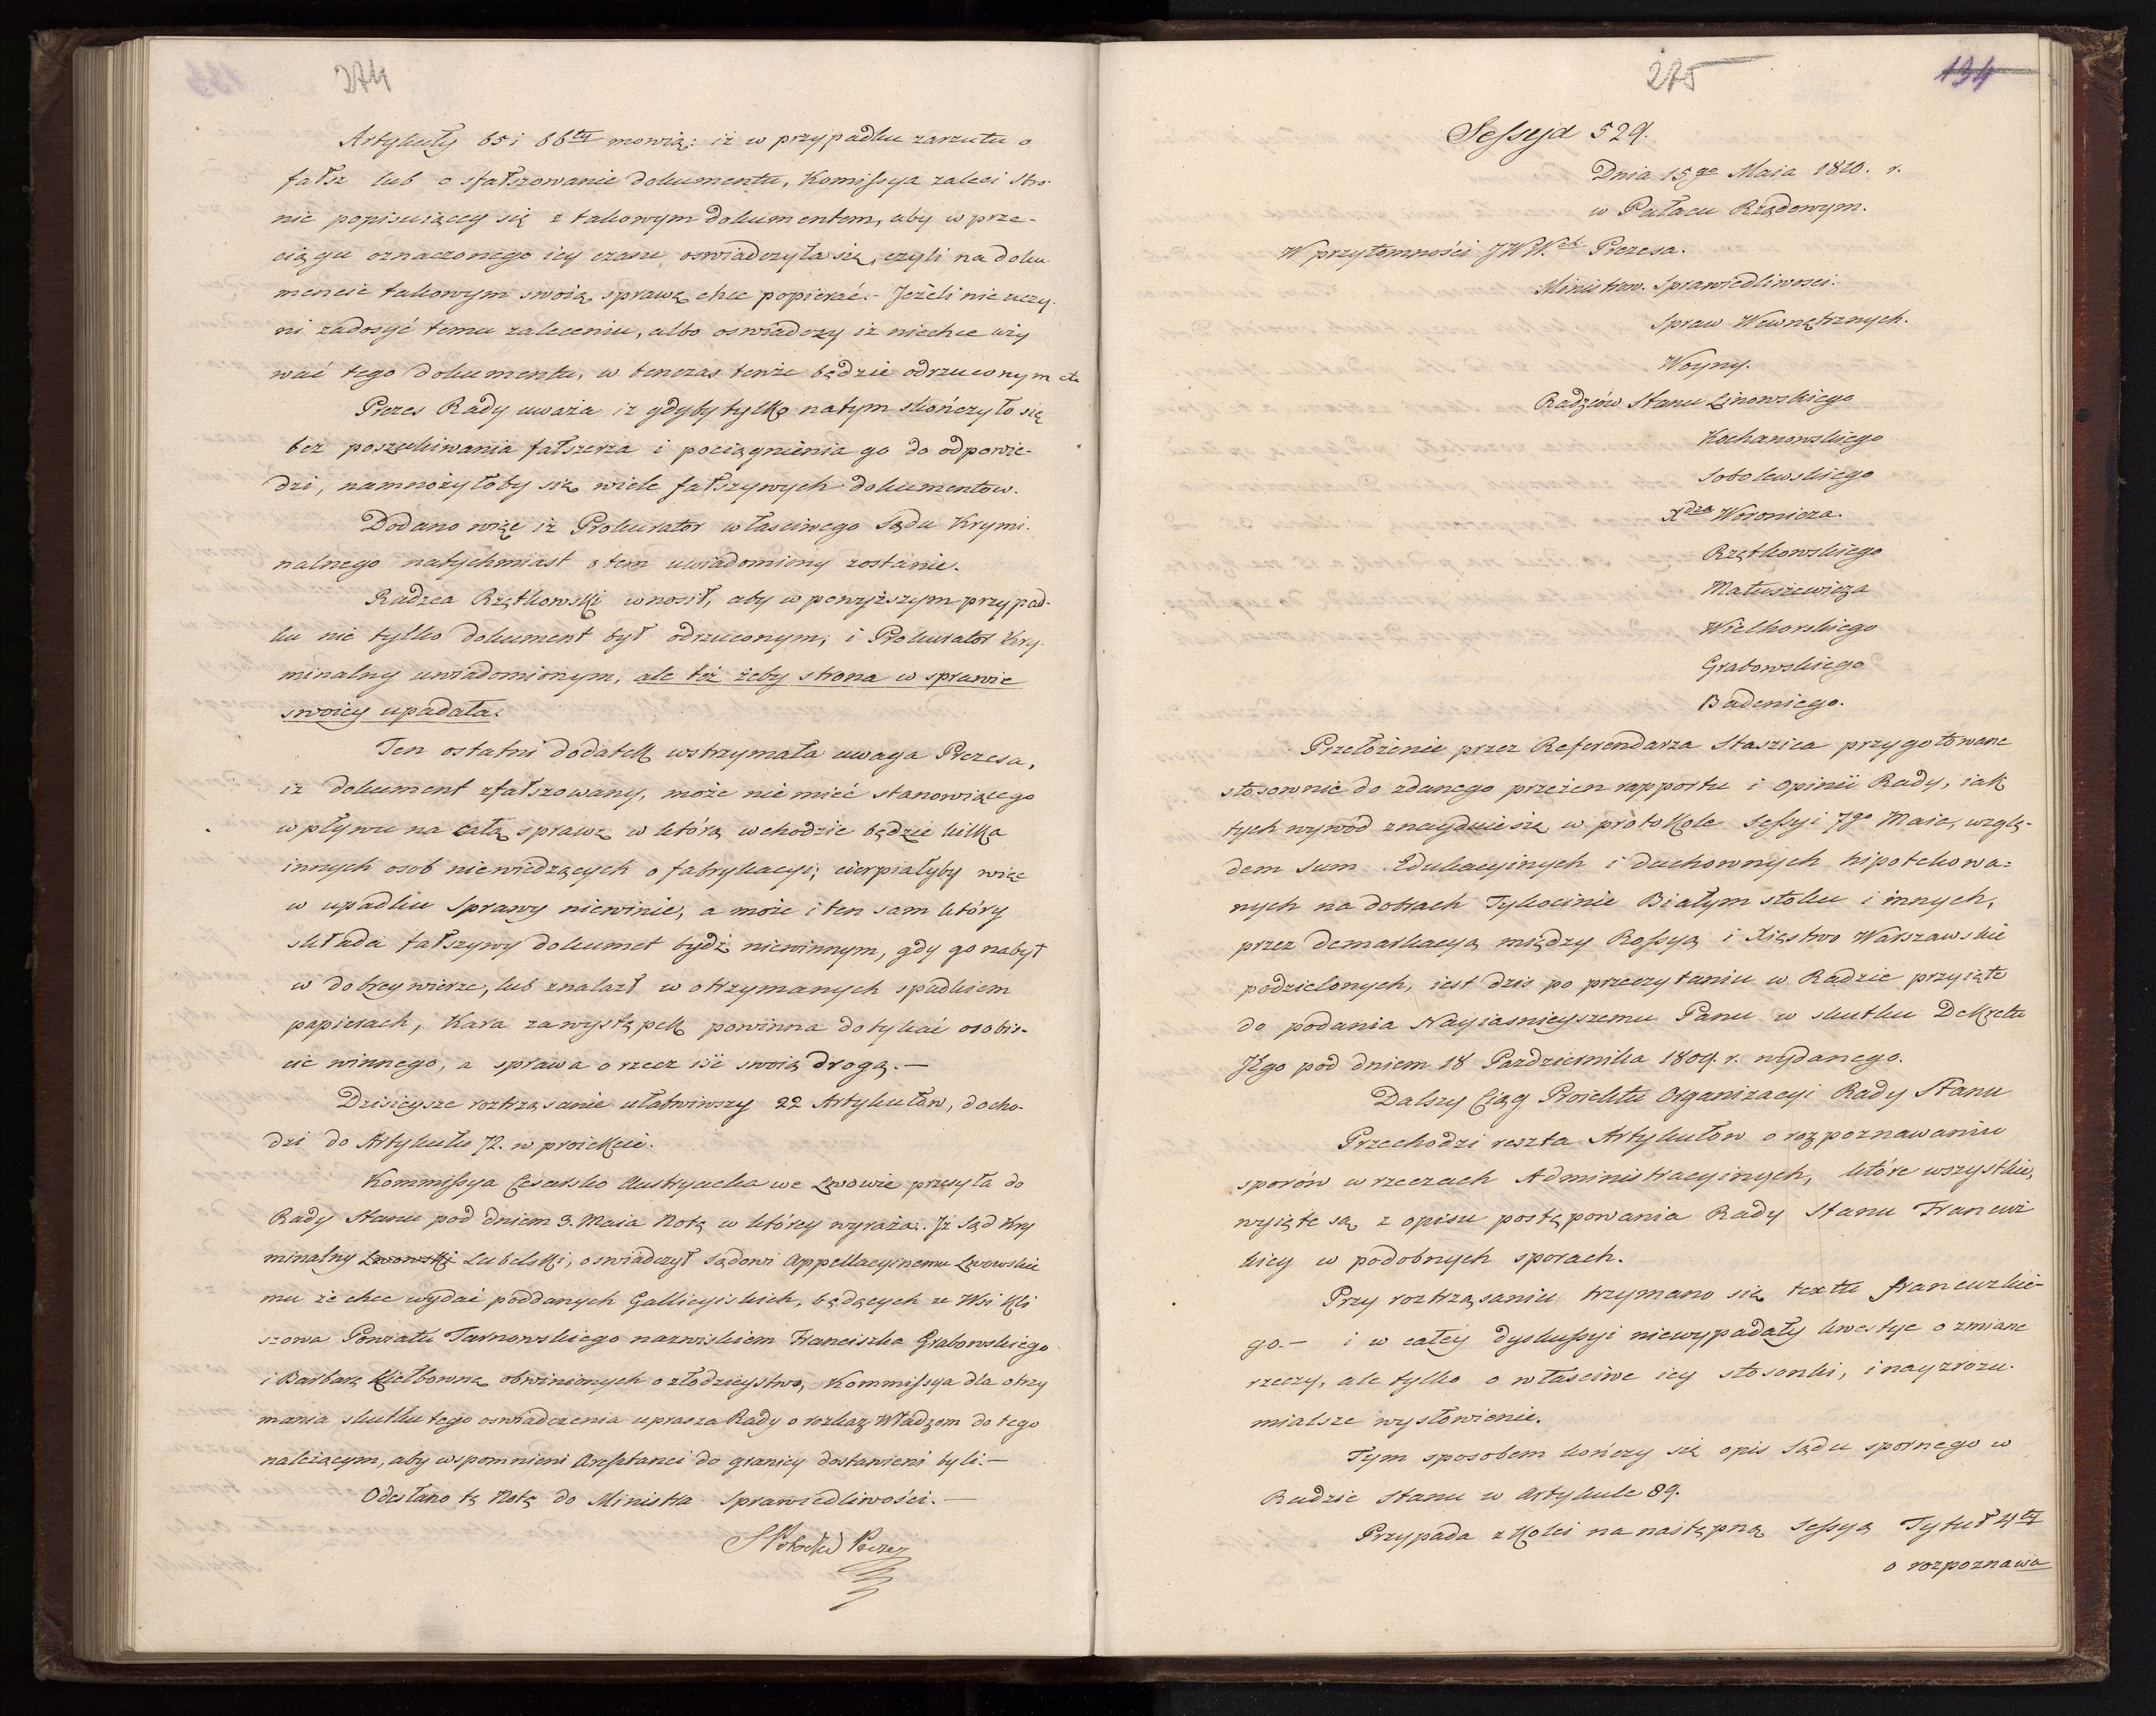 274
Artykuły 65 i 66ty mowią: iż w przypadku zarzutu o
fałsz lub o sfałszowanie dokumentu, Komissya zaleci stro-
nie popisuiącey się z takowym dokumentem, aby w prze-
ciągu oznaczonego iey czasu, oswiadczyła się, czyli na doku
mencie takowym swoią sprawę chce popierać. - Jeżeli nie uczy-
ni zadosyć temu zaleceniu, albo oswiadczy iż niechce uży
wać tego dokumentu, w tenczas tenże będzie odrzuconym etc
Prezes Rady uważa iż gdyby tylko natym skończyło się
bez poszukiwania fałszerza i pociągnienia go do odpowie-
dzi, namnożyłoby się wiele fałszywych dokumentow.
Dodano więc iż Prokurator własciwego Sądu Krymi-
nalnego natychmiast o tem uwiadomiony zostanie.
Radzca Rzętkowski wnosił, aby w powyższym przypad-
ku nie tylko dokument był odrzuconym, i Prokurator Kry-
minalny uwiadomionym, ale też żeby strona w sprawie
swoiey upadała.
Ten ostatni dodatek wstrzymała uwaga Prezesa,
iż dokument zfałszowany, może nie mieć stanowiącego
wpływu na całą sprawę w którą wchodzić będzie kilka
innych osob niewiedzących o fabrykacyi; cierpiałyby więc
w upadku sprawy niewinie, a może i ten sam który
składa fałszywy dokumet bydź niewinnym, gdy go nabył
w dobrey wierze, lub znalazł w otrzymanych spadkiem
papierach, Kara za występek powinna dotykać osobis-
cie winnego, a sprawa o rzecz iść swoią drogą. -
Dzisieysze roztrząsanie ułatwiwszy 22 Artykułow, docho-
dzi do Artykułu 72. w proiekcie.
Kommissya Cesarsko Austryacka we Lwowie przesyła do
Rady Stanu pod dniem 3. Maia Notę w którey wyraża: Iż Sąd Kry
minalny Lwowski Lubelski, oswiadczył Sądowi Appellacyinemu Lwowskie
mu że chce wydać poddanych Gallicyiskich, będących ze Wsi Kli
szowa Powiatu Tarnowskiego nazwiskiem Franciszka Grabowskiego
i Barbarę Kiełbowną obwinionych o złodzieystwo, Kommissya dla otrzy
mania skutku tego oswiadczenia uprasza Rady o rozkaz Władzom do tego
należącym, aby wspomnieni Aresztanci do granicy dostawieni byli. -
Odesłano tę Notę do Ministra Sprawiedliwości. -
S Potocki Prezes
275
134
Sessyja 529.
Dnia 15go Maia 1810. r.
w Pałacu Rządowym.
W przytomności JWW.ch Prezesa.
Ministrow. Sprawiedliwosci.
Spraw Wewnętrznych.
Woyny.
Radzców Stanu Linowskiego
Kochanowskiego
Sobolewskiego
Xdza Woronicza.
Rzętkowskiego
Matuszewicza
Wielhorskiego
Grabowskiego
Badeniego.
Przełożenie przez Referendarza Staszica przygotowane
stosownie do zdanego przezeń rapportu i opinii Rady, iak
tych wywód znayduie się w protokole Sessyi 7go Maia, wzglę-
dem Sum Edukacyinych i duchownych hipotekowa-
nych na dobrach Tykocinie Białym stoku i innych,
przez demarkacyą między Rossyą i Xięstwo Warszawskie
podzielonych, iest dzis po przeczytaniu w Radzie przyięte
do podania Nayiasnieyszemu Panu w skutku Dekretu
Jego pod dniem 18 Pazdziernika 1809. r. wydanego.
Dalszy Ciąg Proiektu Organizacyi Rady Stanu
Przechodzi reszta Artykułow o rozpoznawaniu
sporów w rzeczach Administracyinych, które wszystkie,
wyięte są z opisu postępowania Rady Stanu Francuz
kiey w podobnych sporach.
Przy roztrząsaniu trzymano się textu francuzkie-
go. - i w całey dyskussyi niewypadały kwestye o zmiane
rzeczy, ale tylko o własciwe iey stosonki, i nayzrozu-
mialsze wysłowienie.
Tym sposobem kończy się opis Sądu spornego w
Radzie Stanu w Artykule 89.
Przypada z kolei na następną Sessyą Tytuł 4ty
o rozpoznawa